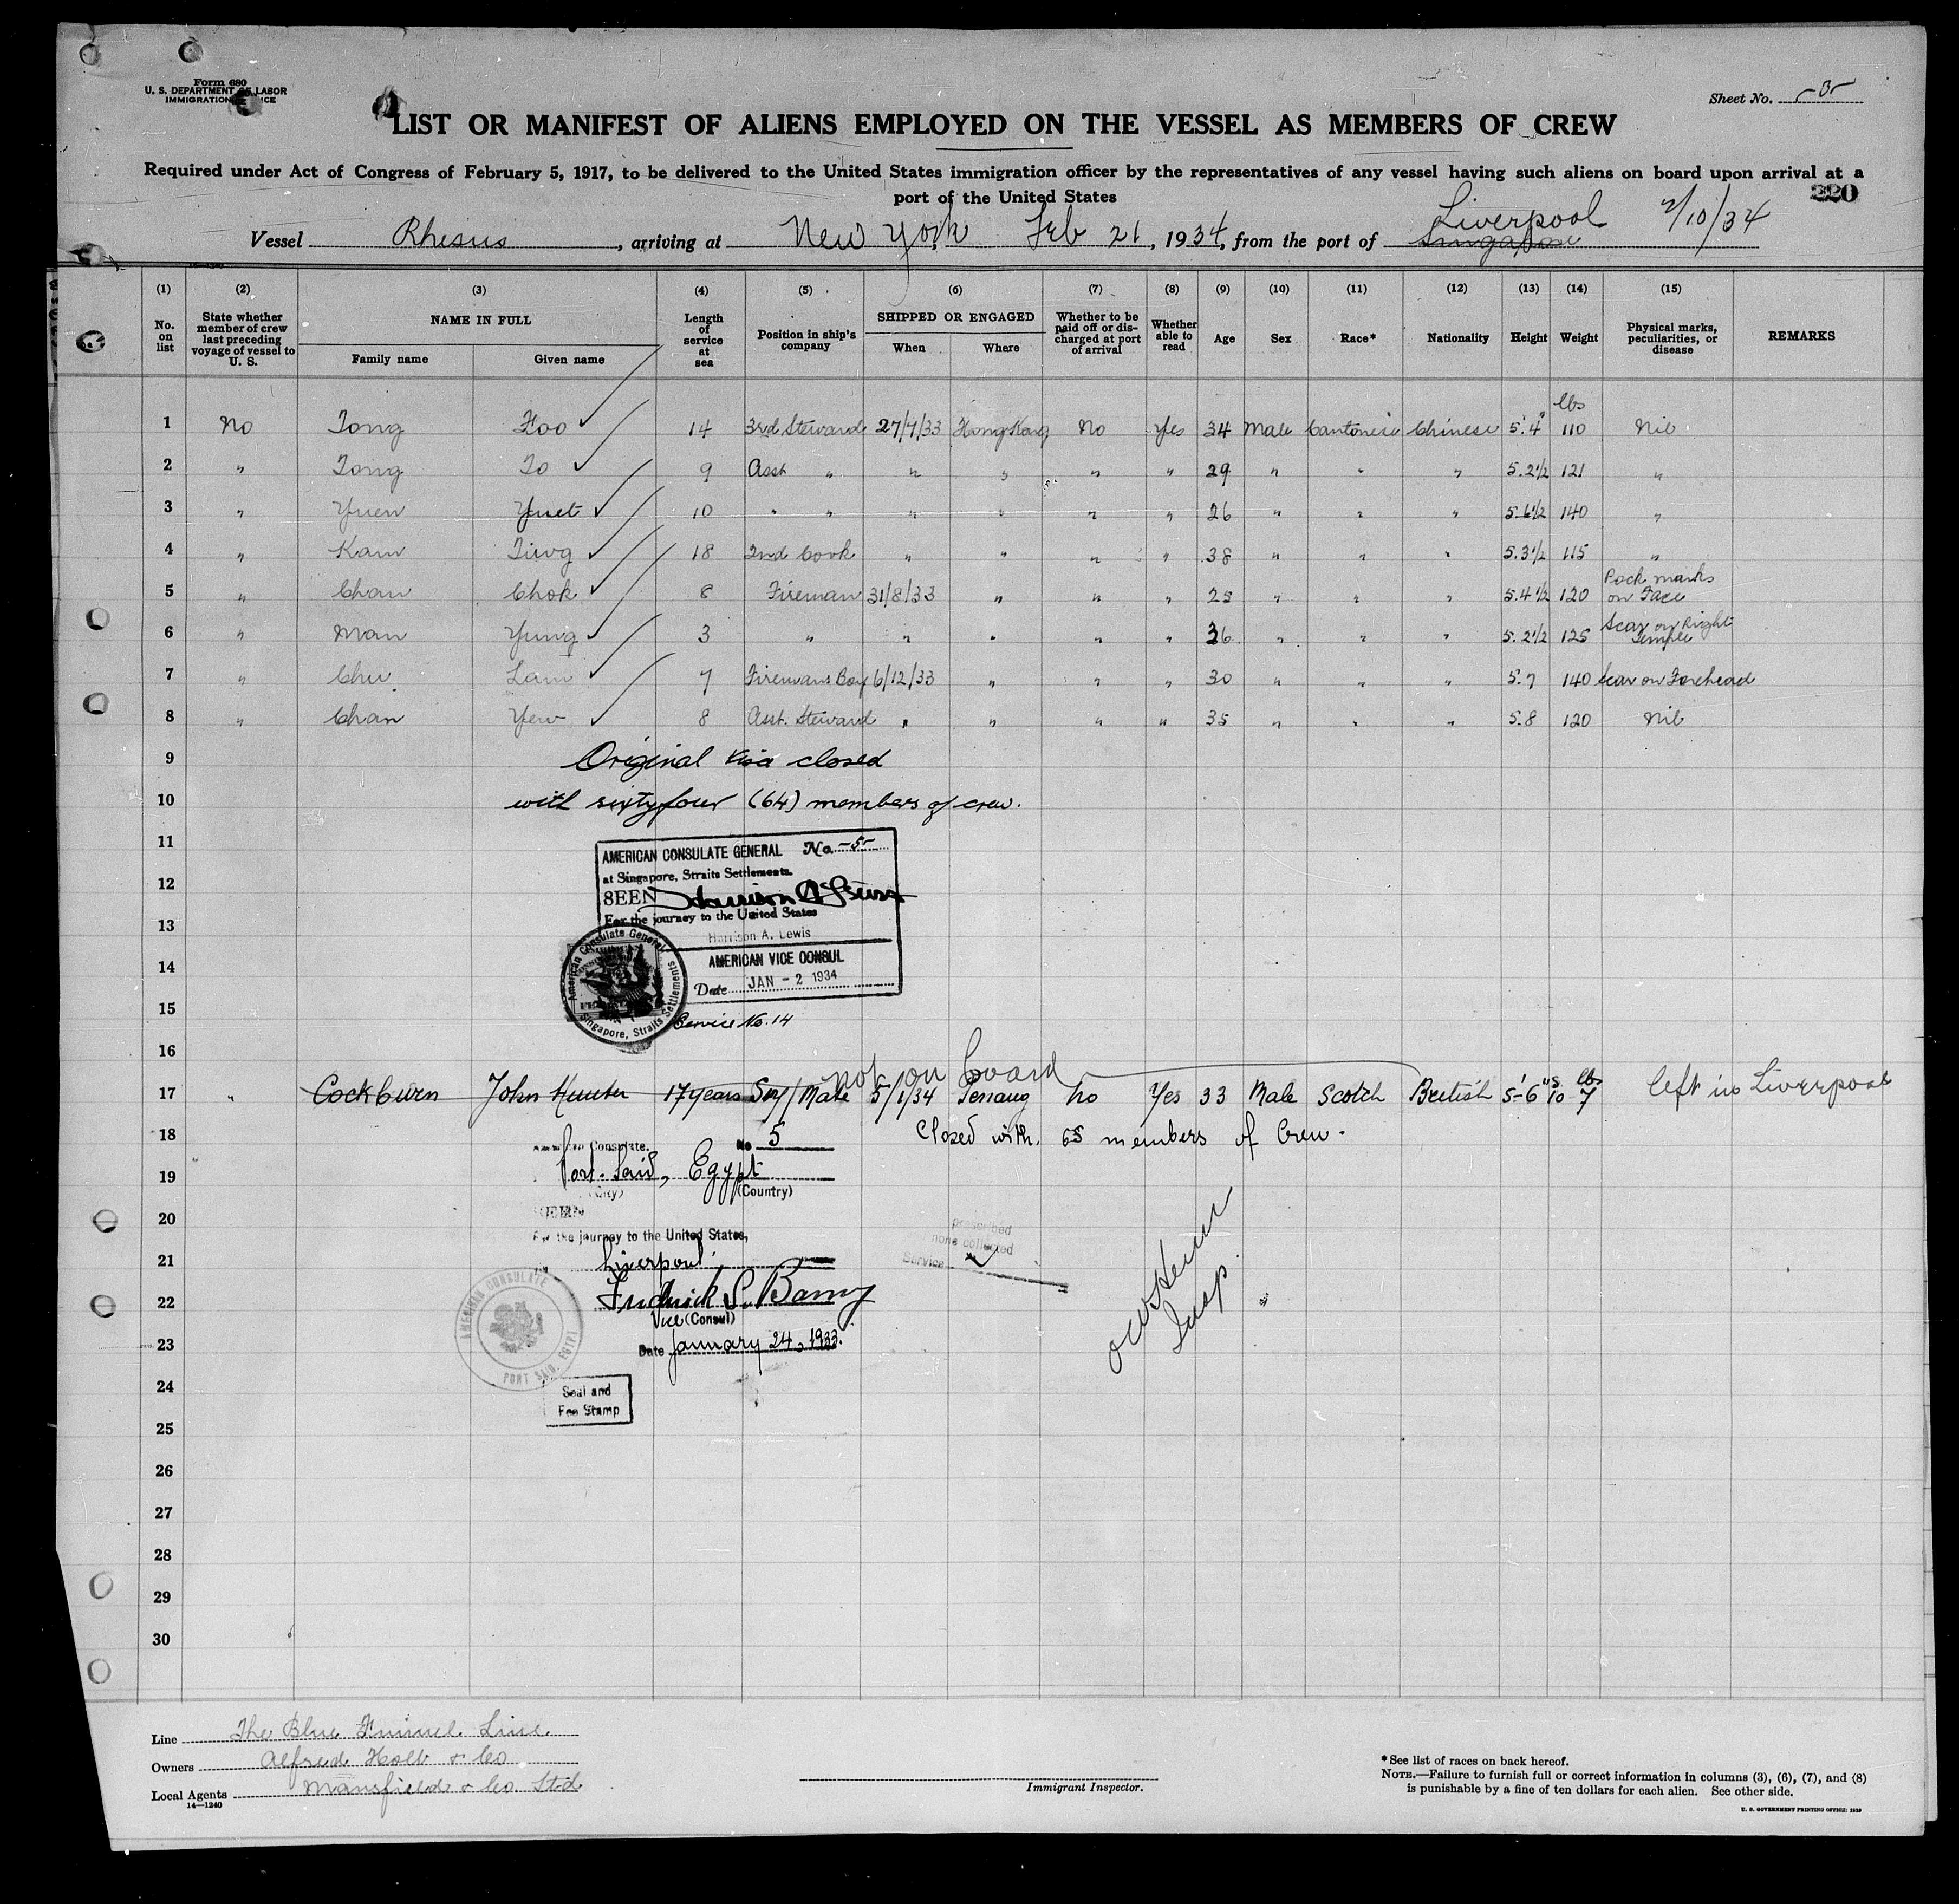 Form 680
U. S. DEPARTMENT OF LABOR
IMMIGRATION
Sheet No. -3-
LIST OR MANIFEST OF ALIENS EMPLOYED ON THE VESSEL AS MEMBERS OF CREW
Required under Act of Congress of February 5, 1917, to be delivered to the United States immigration officer by the representatives of any vessel having such aliens on board upon arrival at a
port of the United States
220
Vessel Rhesus, arriving at New York Feb 21, 1934, from the port of Singapore Liverpool 2/10/34
(1) (2) (3) (4) (5) (6) (7) (8) (9) (10) (11) (12) (13) (14) (15)
No. on list
State whether member of crew last preceding voyage of vessel to U. S.
NAME IN FULL
Family name
Given name
Length of service at sea
Position in ship's company
SHIPPED OR ENGAGED
When
Where
Whether to be paid off or discharged at port of arrival
Whether able to read
Age
Sex
Race*
Nationality
Height
Weight
Physical marks, peculiarities, or disease
REMARKS
lbs
1 No Tong Foo 14 3rd Steward 27/7/33 Hong Kong No Yes 34 Male Cantonese Chinese 5.4" 110 Nil
2 " Tong To 9 Asst " " " " " 29 " " " 5.2½ 121 "
3 " Yuen Yuet 10 " " " " " " 26 " " " 5.6½ 140 "
4 " Kam Ting 18 2nd Cook " " " " 38 " " " 5.3½ 115 "
5 " Chan Chok 8 Fireman 31/8/33 " " " 25 " " " 5.4½ 120 Pock marks on Face
6 " Man Yung 3 " " " " " 36 " " " 5.2½ 125 Scar on Right Temple
7 " Chu Lam 7 Firemans Boy 6/12/33 " " " 30 " " " 5.7 140 Scar on Forehead
8 " Chan Yew 8 Asst. Steward " " " " 35 " " " 5.8 120 Nil
9 Original visa closed
10 with sixty four (64) members of crew.
11
AMERICAN CONSULATE GENERAL No. -5-
at Singapore, Straits Settlements.
12
SEEN Harrison A Lewis
For the journey to the United States
13
Harrison A. Lewis
14
AMERICAN VICE CONSUL
Date JAN - 2 1934
American Consulate General
Singapore, Straits Settlements
15
Service No. 14
16
not on board
17 " Cockburn John Hunter 17 years Sny/Mate 5/1/34 Penang No Yes 33 Male Scotch British 5'-6" 10 7 lbs left in Liverpool
18 Closed with 65 members of Crew.
American Consulate. No 5
19
Port Said, Egypt
(City) (Country)
20
SEEN
For the journey to the United States,
prescribed
none collected
Service
21
Liverpool
22
Fredrick L. Barny
Vice (Consul)
23
Date January 24, 1933.
AMERICAN CONSULATE
PORT SAID, EGYPT
Insp.
24
Seal and
Fee Stamp
25
26
27
28
29
30
Line The Blue Funnel Line
Owners Alfred Holt & Co
Local Agents Mansfield & Co Ltd
14—1240
Immigrant Inspector.
*See list of races on back hereof.
NOTE.—Failure to furnish full or correct information in columns (3), (6), (7), and (8)
is punishable by a fine of ten dollars for each alien. See other side.
U. S. GOVERNMENT PRINTING OFFICE: 1929